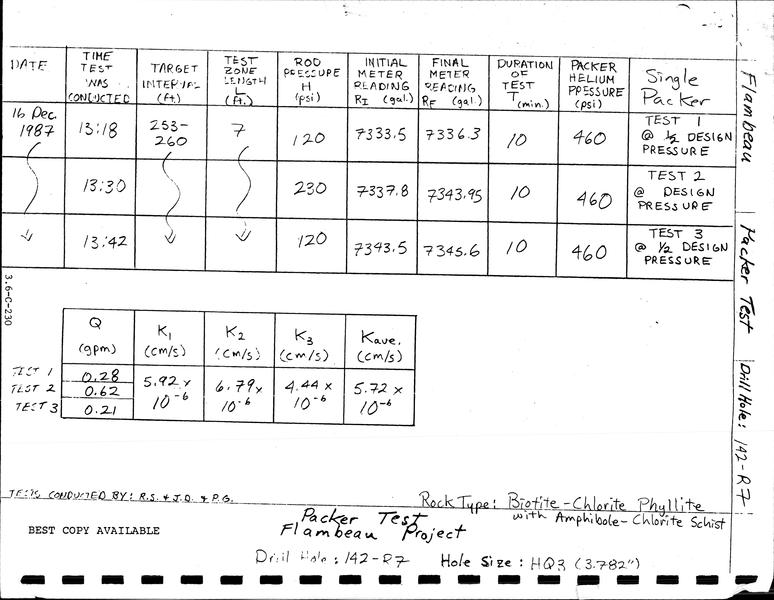 DATE
TIME TEST WAS CONDUCTED
TARGET INTERVAL (ft.)
TEST ZONE LENGTH L (ft.)
ROD PRESSURE H (psi)
INITIAL METER READING RI (gal.)
FINAL METER READING RF (gal.)
DURATION OF TEST T (min.)
PACKER HELIUM PRESSURE (psi)
Single Packer
16 Dec. 1987 13:18 253-260 7 120 7333.5 7336.3 10 460 TEST 1 @ ½ DESIGN PRESSURE
13:30 230 7337.8 7343.95 10 460 TEST 2 @ DESIGN PRESSURE
13:42 120 7343.5 7345.6 10 460 TEST 3 @ ½ DESIGN PRESSURE
Flambeau Packer Test Drill Hole: 142-R7
3.6-C-230
Q (gpm) K1 (cm/s) K2 (cm/s) K3 (cm/s) Kave. (cm/s)
TEST 1 0.28
TEST 2 0.62
TEST 3 0.21
5.92 x 10-6 6.79 x 10-6 4.44 x 10-6 5.72 x 10-6
TESTS CONDUCTED BY: R.S. & J.D. & P.G.
Rock Type: Biotite-Chlorite Phyllite
with Amphibole-Chlorite Schist
Packer Test
Flambeau Project
BEST COPY AVAILABLE
Drill Hole: 142-R7 Hole Size: HQ3 (3.782")